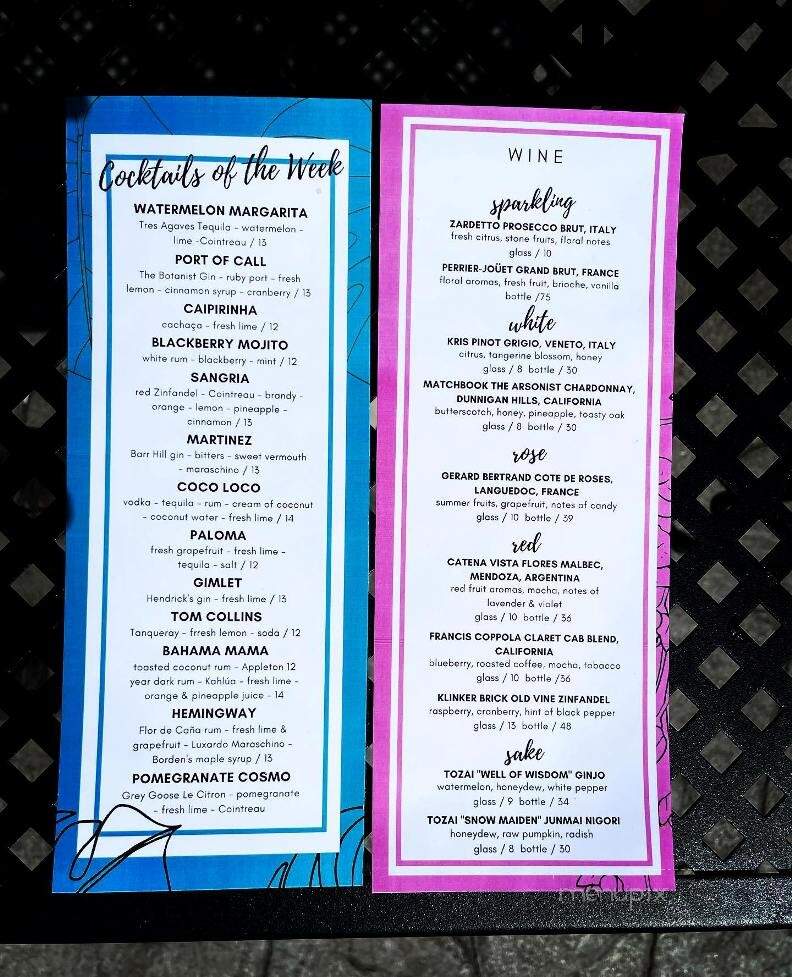 Cocktails of the Week
WATERMELON MARGARITA
Tres Agaves Tequila - watermelon -
lime -Cointreau / 13
PORT OF CALL
The Botanist Gin - ruby port - fresh
lemon - cinnamon syrup - cranberry / 13
CAIPIRINHA
cachaça - fresh lime / 12
BLACKBERRY MOJITO
white rum - blackberry - mint / 12
SANGRIA
red Zinfandel - Cointreau - brandy -
orange - lemon - pineapple -
cinnamon / 13
MARTINEZ
Barr Hill gin - bitters - sweet vermouth
- maraschino / 13
COCO LOCO
vodka - tequila - rum - cream of coconut
- coconut water - fresh lime / 14
PALOMA
fresh grapefruit - fresh lime -
tequila - salt / 12
GIMLET
Hendrick's gin - fresh lime / 13
TOM COLLINS
Tanqueray - frresh lemon - soda / 12
BAHAMA MAMA
toasted coconut rum - Appleton 12
year dark rum - Kahlúa - fresh lime -
orange & pineapple juice - 14
HEMINGWAY
Flor de Caña rum - fresh lime &
grapefruit - Luxardo Maraschino -
Borden's maple syrup / 13
POMEGRANATE COSMO
Grey Goose Le Citron - pomegranate
- fresh lime - Cointreau
WINE
sparkling
ZARDETTO PROSECCO BRUT, ITALY
fresh citrus, stone fruits, floral notes
glass / 10
PERRIER-JOÜET GRAND BRUT, FRANCE
floral aromas, fresh fruit, brioche, vanilla
bottle /75
white
KRIS PINOT GRIGIO, VENETO, ITALY
citrus, tangerine blossom, honey
glass / 8 bottle / 30
MATCHBOOK THE ARSONIST CHARDONNAY,
DUNNIGAN HILLS, CALIFORNIA
butterscotch, honey, pineapple, toasty oak
glass / 8 bottle / 30
rose
GERARD BERTRAND COTE DE ROSES,
LANGUEDOC, FRANCE
summer fruits, grapefruit, notes of candy
glass / 10 bottle / 39
red
CATENA VISTA FLORES MALBEC,
MENDOZA, ARGENTINA
red fruit aromas, mocha, notes of
lavender & violet
glass / 10 bottle / 36
FRANCIS COPPOLA CLARET CAB BLEND,
CALIFORNIA
blueberry, roasted coffee, mocha, tobacco
glass / 10 bottle /36
KLINKER BRICK OLD VINE ZINFANDEL
raspberry, cranberry, hint of black pepper
glass / 13 bottle / 48
sake
TOZAI "WELL OF WISDOM" GINJO
watermelon, honeydew, white pepper
glass / 9 bottle / 34
TOZAI "SNOW MAIDEN" JUNMAI NIGORI
honeydew, raw pumpkin, radish
glass / 8 bottle / 30
menupix